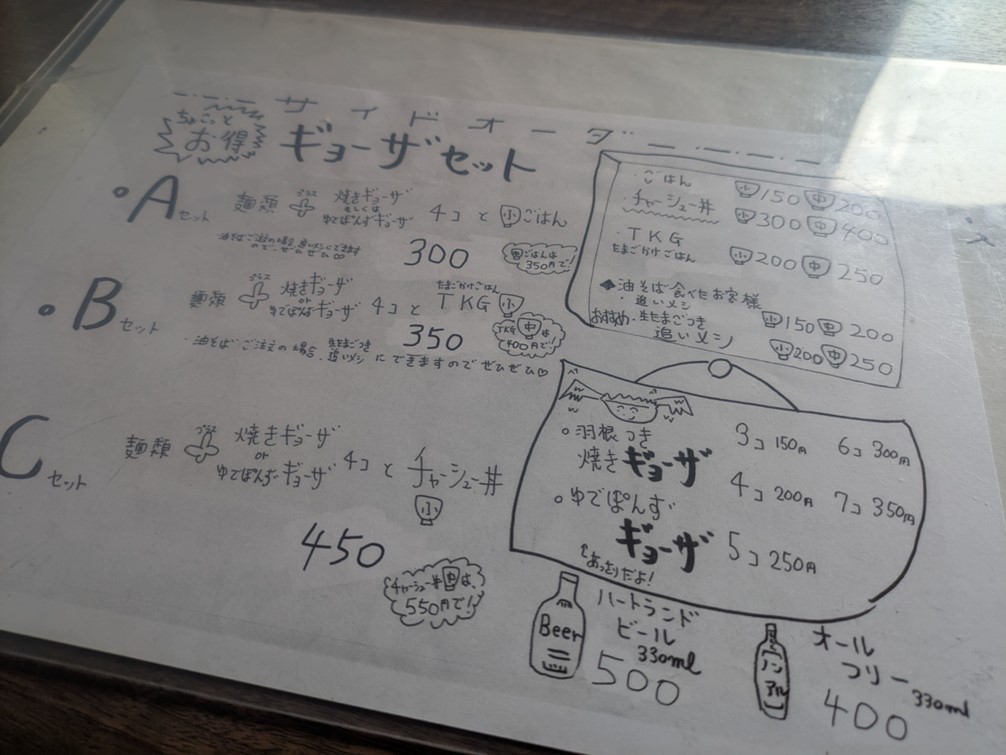 サイドオーダー
ちょこっと
お得
ギョーザセット
・Aセット 麺類 プラス 焼きギョーザ もしくは ゆでぽんずギョーザ 4コ と 小 ごはん
300
中ごはんは
350円で!
・Bセット 麺類 プラス 焼きギョーザ or ゆでぽんずギョーザ 4コ と たまごかけごはん TKG 小
350
TKG 中は
400円で!
・油そばご注文の場合、生たまごつき追いメシにできますのでぜひぜひ♡
Cセット 麺類 プラス 焼きギョーザ or ゆでぽんずギョーザ 4コ と チャーシュー丼
小
450
チャーシュー丼中は、
550円で!
・ごはん 小150 中200
・チャーシュー丼 小300 中400
・TKG
たまごかけごはん 小200 中250
◆油そば食べたお客様
・追いメシ 小150 中200
おすすめ・生たまごつき
追いメシ 小200 中250
・羽根つき
焼きギョーザ
・ゆでぽんず
ギョーザ
あっさりだよ!
3コ 150円 6コ 300円
4コ 200円 7コ 350円
5コ 250円
Beer
ハートランド
ビール
330ml
500
ノンアル
オール
フリー
330ml
400